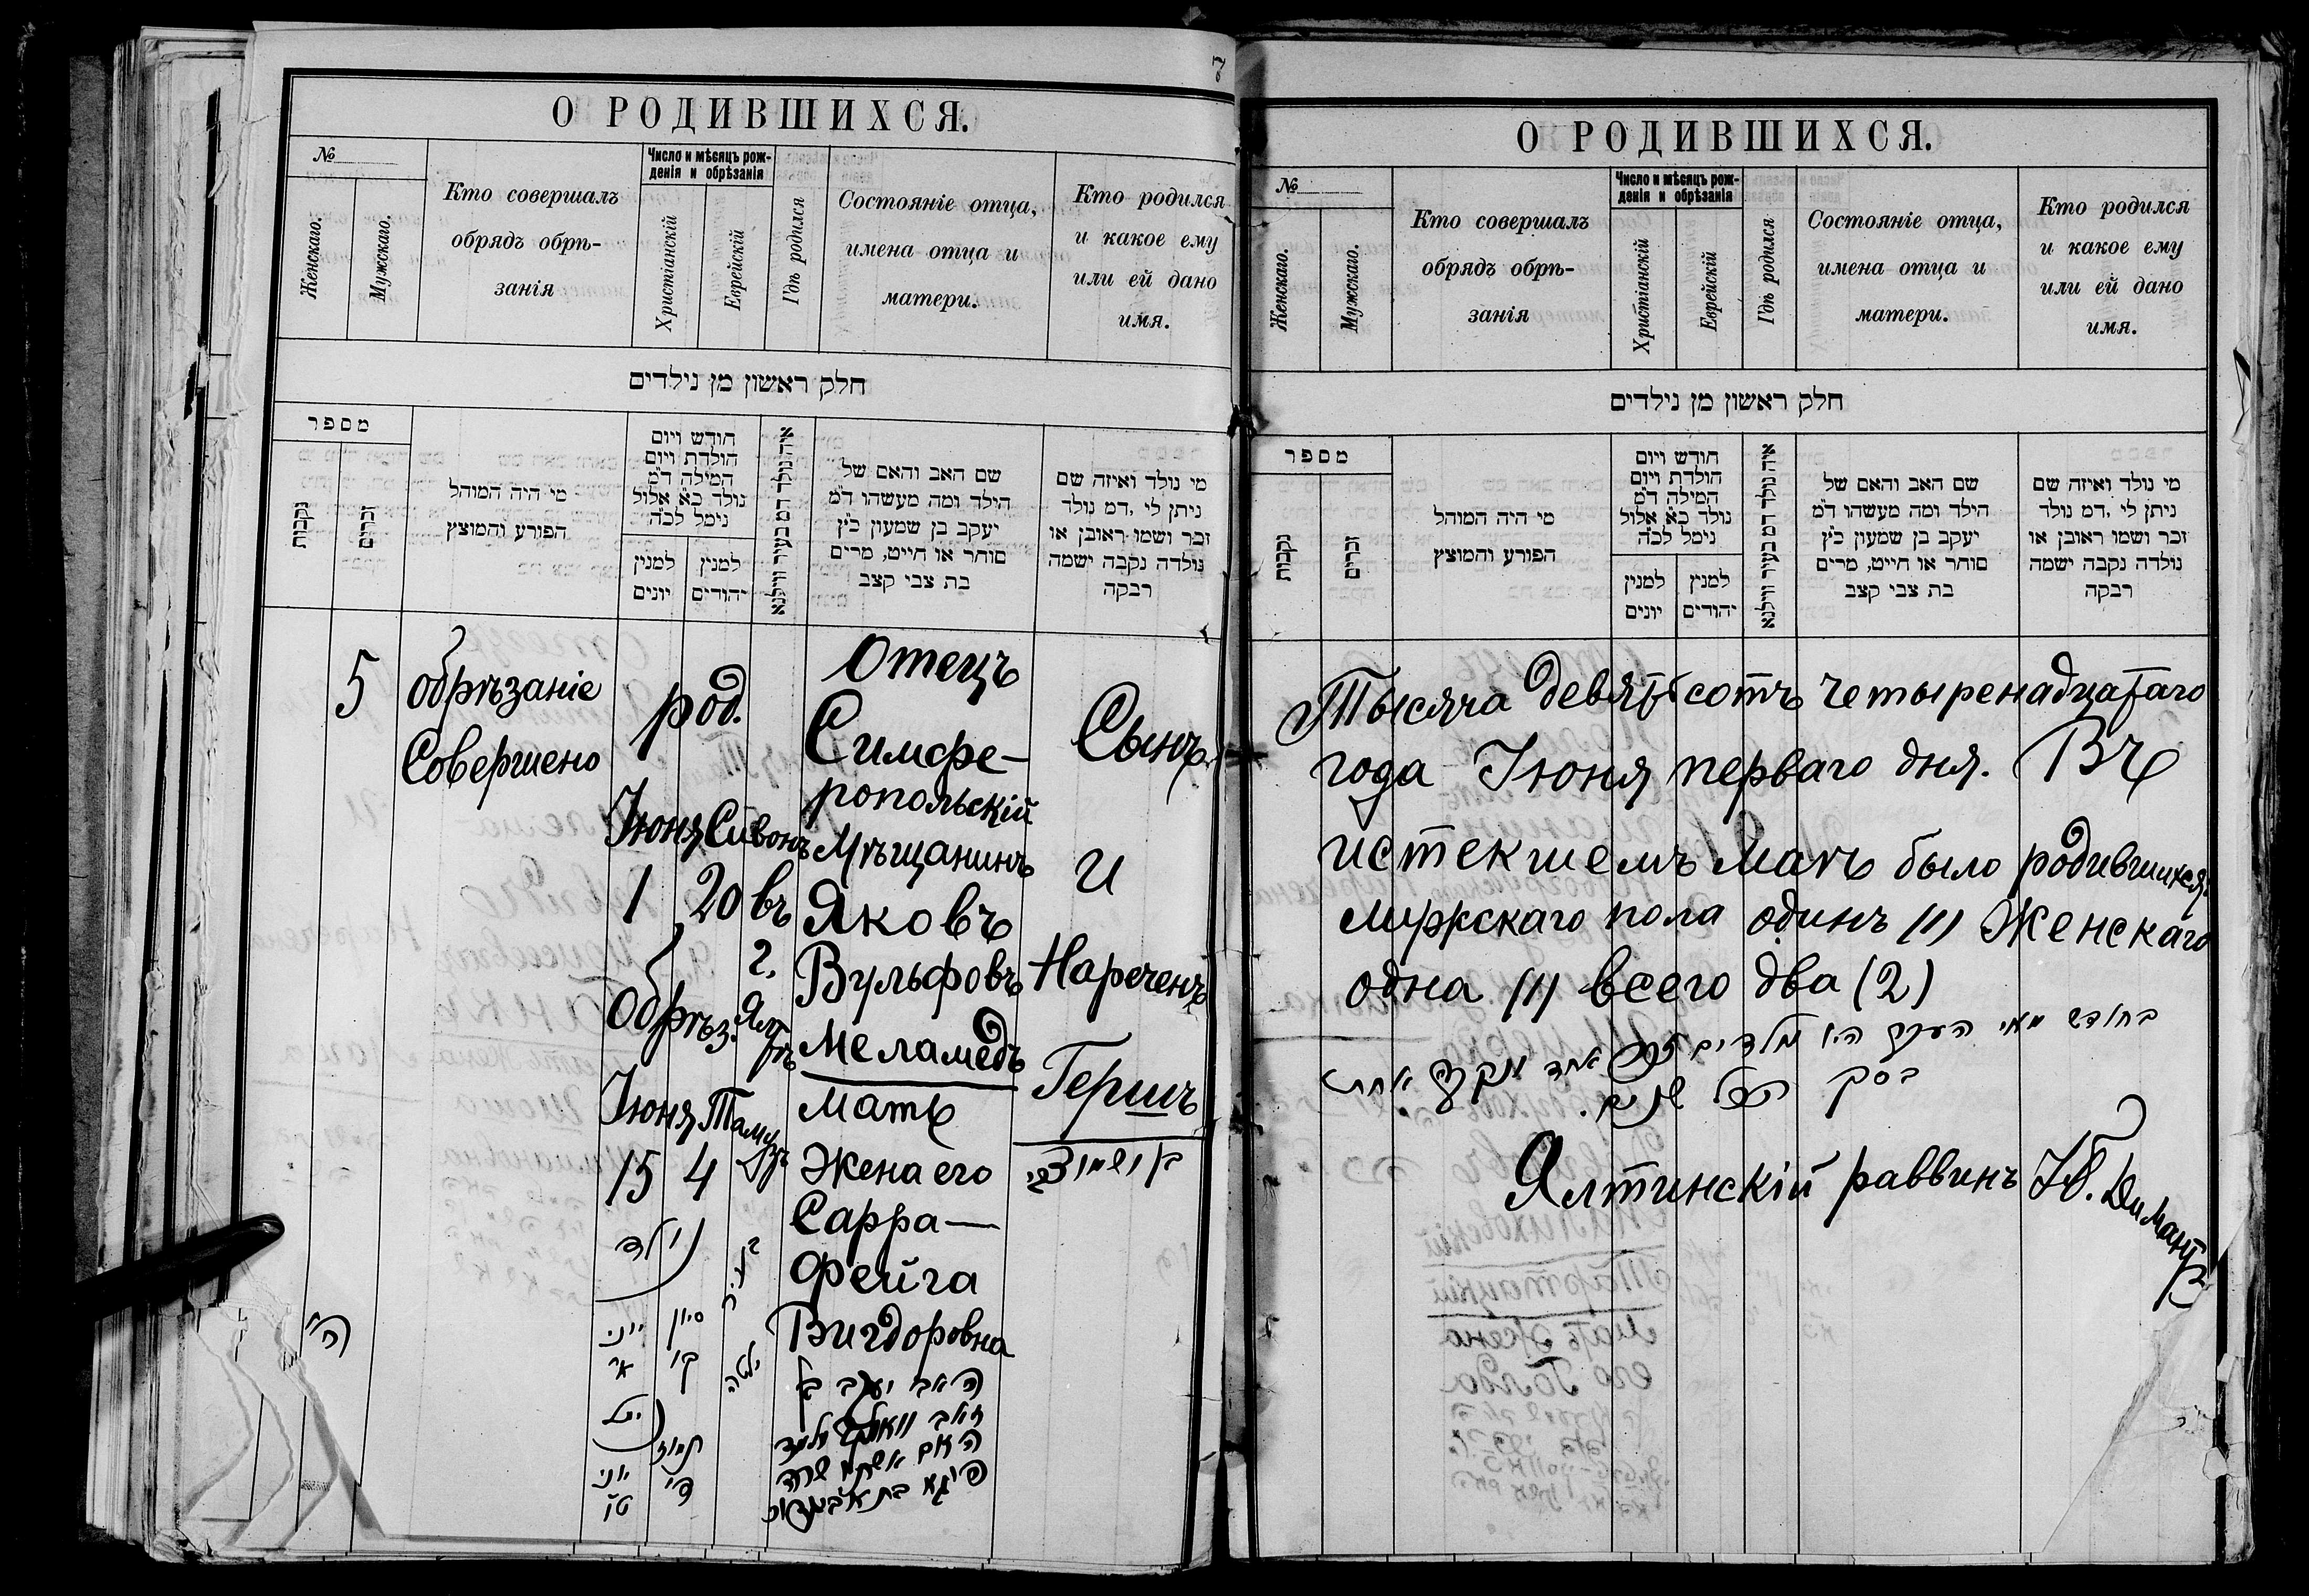 7
О РОДИВШИХСЯ.
№
Женскаго.
Мужскаго.
Кто совершалъ
обрядъ обрѣ-
занія
Число и мѣсяцъ рож-
денія и обрѣзанія
Христіанскій
Еврейскій
Гдѣ родился
Состояніе отца,
имена отца и
матери.
Кто родился
и какое ему
или ей дано
имя.
חלק ראשון מן נילדים
מספר
נקבות
זכרים
מי היה המוהל
הפורע והמוצץ
חודש ויום
הולדת ויום
המילה ד״מ
נולד כ״א אלול
נימל לכ״ה
למנין
יונים
למנין
יהודים
איה נולד דמ בעיר ווילנא
שם האב והאם של
הילד ומה מעשהו ד״מ
יעקב בן שמעון כ״ץ
סוחר או חייט, מרים
בת צבי קצב
מי נולד ואיזה שם
ניתן לי, דמ נולד
זכר ושמו ראובן או
נולדה נקבה ישמה
רבקה
5
обрѣзаніе
Совершено
род.
Іюня Сивонъ
1 20
Обрѣз.
Іюня Тамузъ
15 4
въ
г.
Ялтѣ
Отецъ
Симфе-
ропольскій
Мѣщанинъ
Яковъ
Вульфовъ
Меламедъ
Мать
Жена его
Сарра-
Фейга
Вигдоровна
Сынъ
и
Нареченъ
Гершъ
נולד
יוני
סיון
בעיר
ילטה
תמוז
יוני
האב יעקב בן
О РОДИВШИХСЯ.
№
Женскаго.
Мужскаго.
Кто совершалъ
обрядъ обрѣ-
занія
Число и мѣсяцъ рож-
денія и обрѣзанія
Христіанскій
Еврейскій
Гдѣ родился
Состояніе отца,
имена отца и
матери.
Кто родился
и какое ему
или ей дано
имя.
חלק ראשון מן נילדים
מספר
נקבות
זכרים
מי היה המוהל
הפורע והמוצץ
חודש ויום
הולדת ויום
המילה ד״מ
נולד כ״א אלול
נימל לכ״ה
למנין
יונים
למנין
יהודים
איה נולד דמ בעיר ווילנא
שם האב והאם של
הילד ומה מעשהו ד״מ
יעקב בן שמעון כ״ץ
סוחר או חייט, מרים
בת צבי קצב
מי נולד ואיזה שם
ניתן לי, דמ נולד
זכר ושמו ראובן או
נולדה נקבה ישמה
רבקה
Тысяча девятьсотъ четыренадцатаго
года Іюня перваго дня. Въ
истекшемъ Маѣ было родившихся:
мужскаго пола одинъ (1) Женскаго
одна (1) всего два (2)
בחודש מאי
Ялтинскій раввинъ